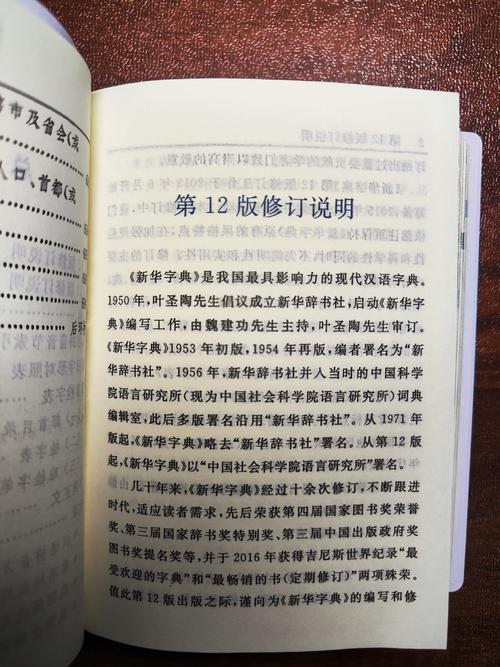 市及省会(或
人口、首都(或
第12版修订说明
《新华字典》是我国最具影响力的现代汉语字典。
1950年,叶圣陶先生倡议成立新华辞书社,启动《新华字
典》编写工作,由魏建功先生主持,叶圣陶先生审订。
《新华字典》1953年初版,1954年再版,编者署名为“新
华辞书社”。1956年,新华辞书社并入当时的中国科学
院语言研究所(现为中国社会科学院语言研究所)词典
编辑室,此后多版署名沿用“新华辞书社”。从1971年
版起,《新华字典》略去“新华辞书社”署名。从第12版
起,《新华字典》以“中国社会科学院语言研究所”署名。
几十年来,《新华字典》经过十余次修订,不断跟进
时代,适应读者需求,先后荣获第四届国家图书奖荣誉
奖、第三届国家辞书奖特别奖、第三届中国出版政府奖
图书奖提名奖等,并于2016年获得吉尼斯世界纪录“最
受欢迎的字典”和“最畅销的书(定期修订)”两项殊荣。
值此第12版出版之际,谨向为《新华字典》的编写和修